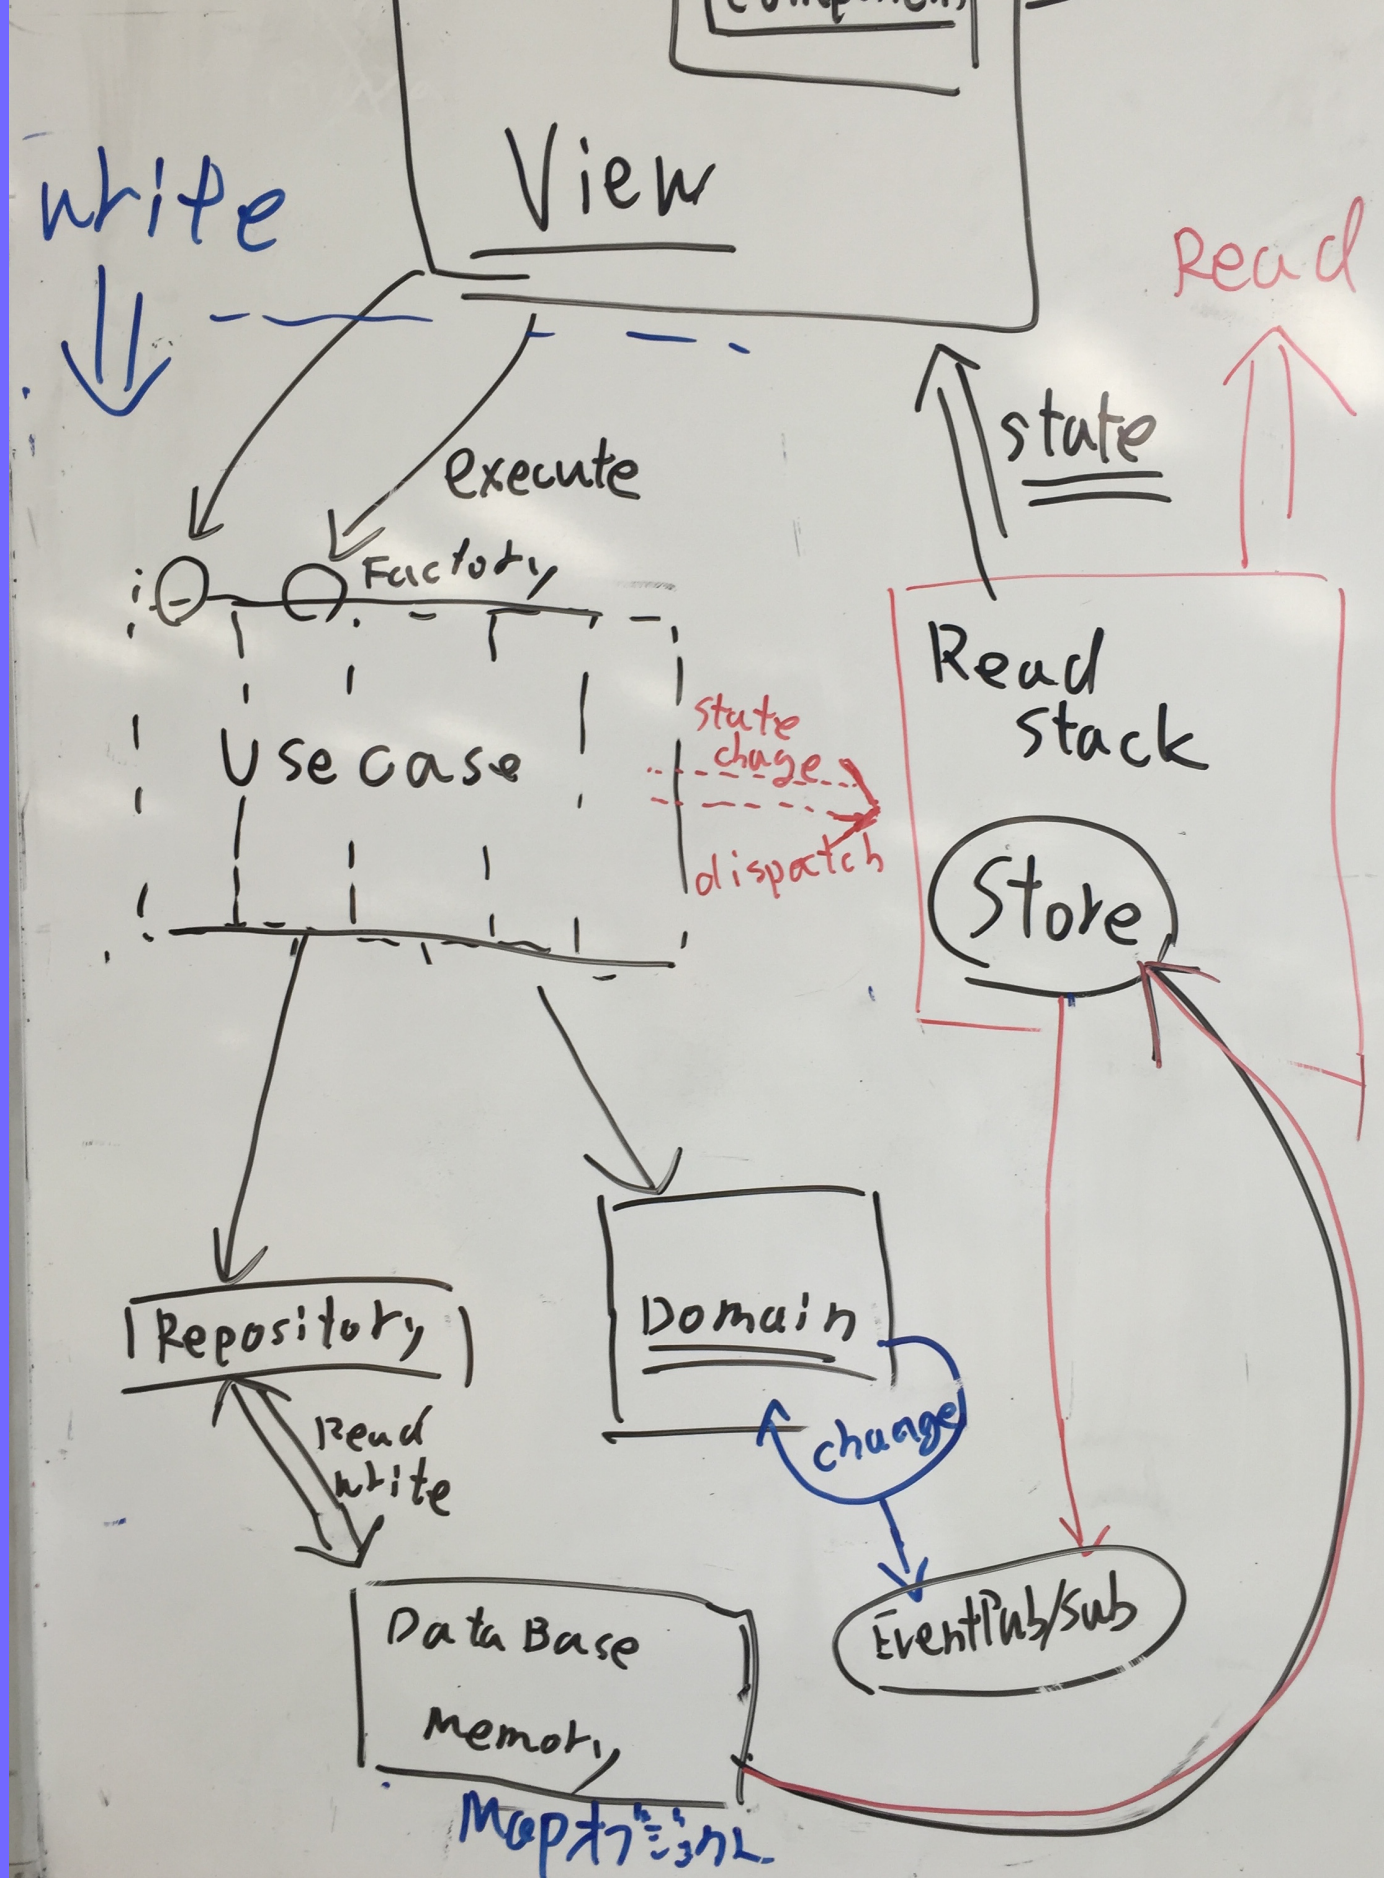 component
View
write
Read
state
execute
Factory
Usecase
state
chage
dispatch
Read
stack
Store
Repository
Domain
Read
write
change
DataBase
Memory
EventPub/sub
Mapオブジェクト